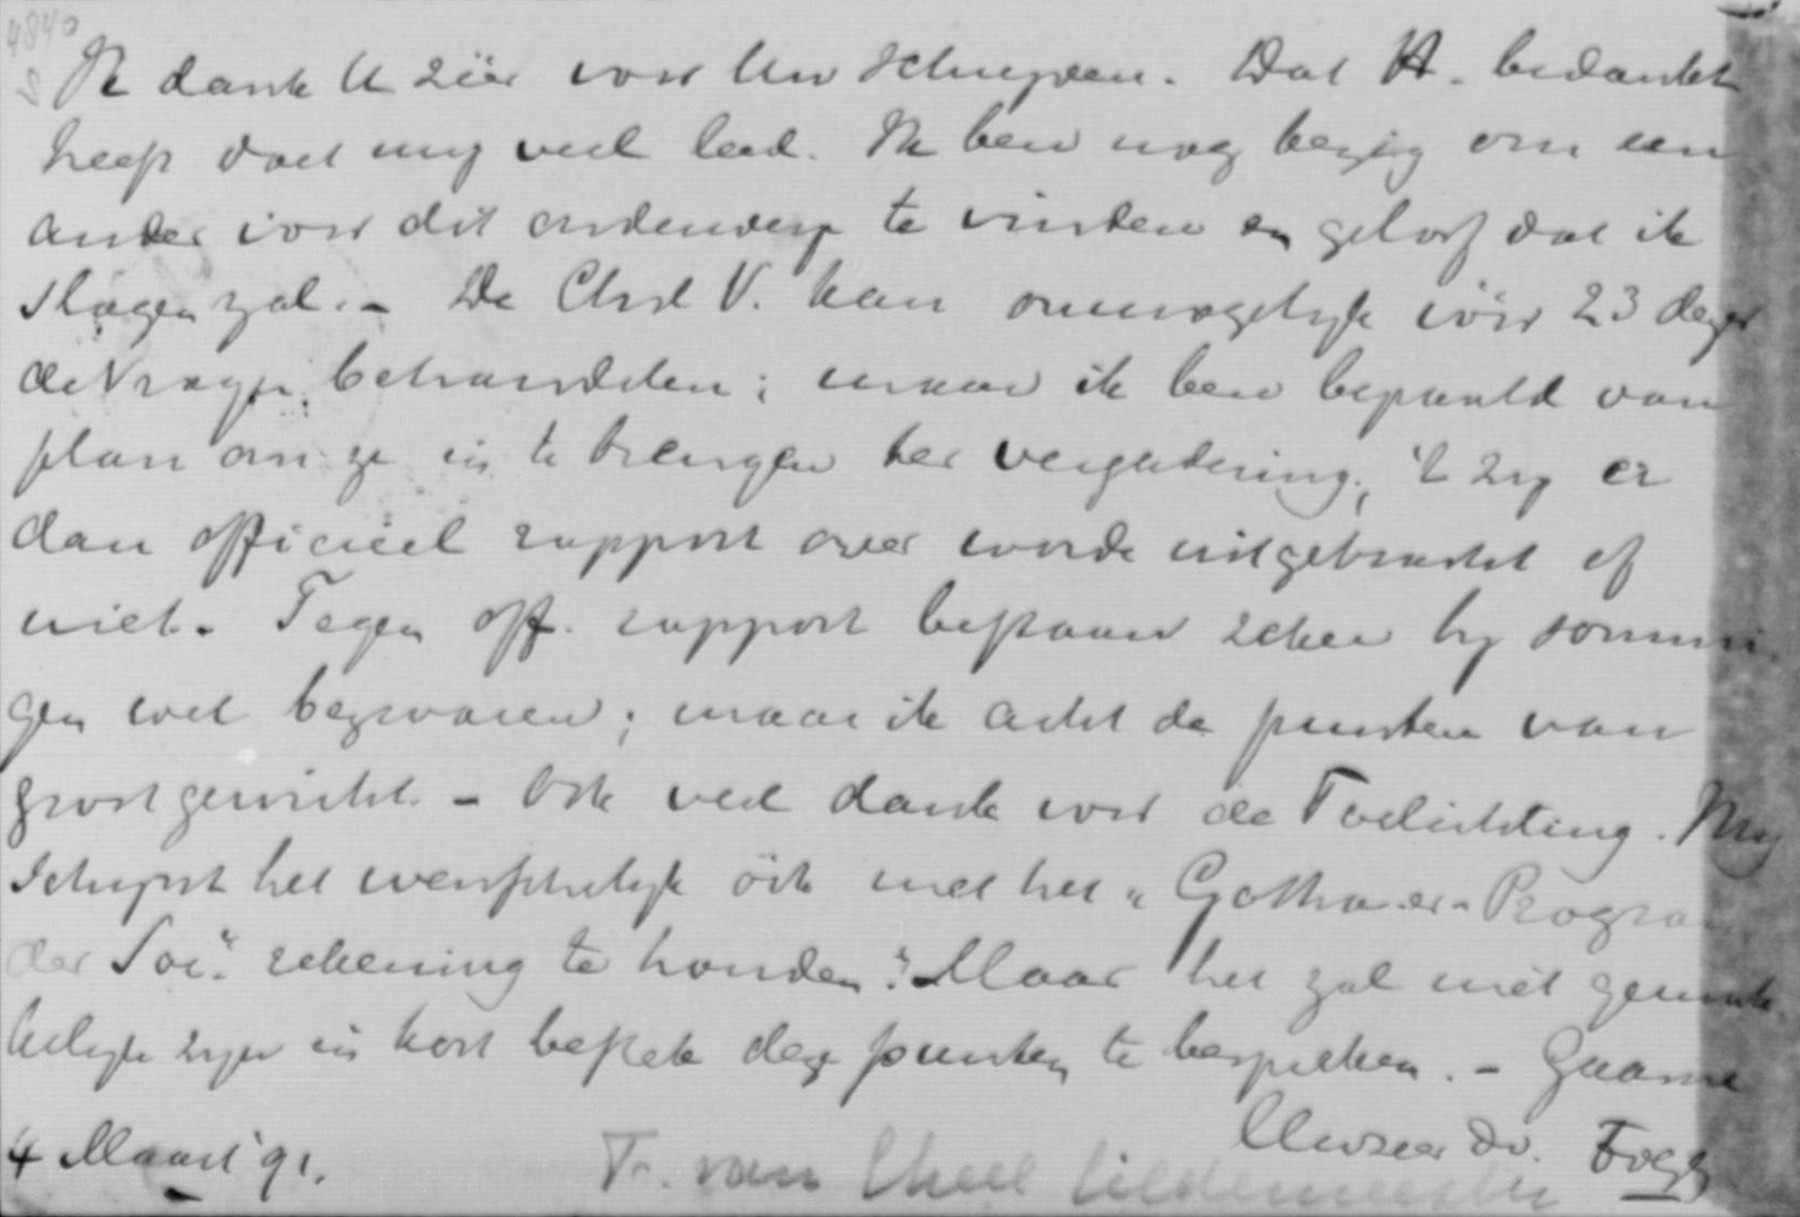 4840
Ik dank U zéér voor Uw schrijven. Dat H. bedankt
heeft doet mij veel leed. Ik ben nog bezig om een
ander voor dit onderwerp te vinden en geloof dat ik
slagen zal. - De Chrl V. kan onmogelijk vóór 23 dezer
de vragen behandelen; maar ik ben bepaald van
plan om ze in te brengen ter vergadering, 't zij er
dan officiëel rapport over worde uitgebracht of
niet. Tegen off. rapport bestaan zeker bij sommi-
gen wel bezwaren; maar ik acht de punten van
groot gewicht. - Ook veel dank voor de Toelichting. Mij
schijnt het wenschelijk óók met het "Gothaer-Progra
der Soc." rekening te houden. Maar het zal niet gemak-
kelijk zijn in kort bestek deze punten te bespreken. - Gaarne
Uwzeer dv.
4 Maart '91. F. van Cheel Gildemeester